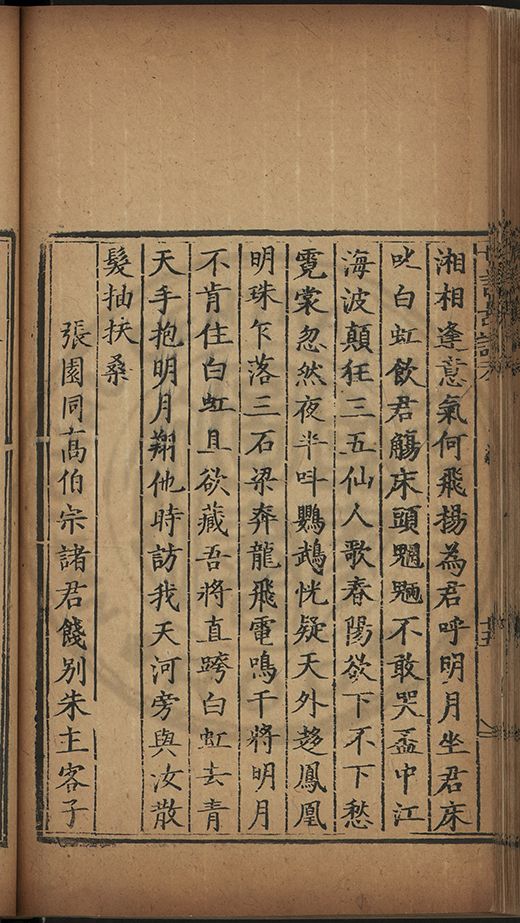 湘相逢意氣何飛揚為君呼明月坐君床
吐白虹飲君觴床頭魍魎不敢哭盃中江
海波顛狂三五仙人歌春陽欲下不下愁
霓裳忽然夜半呌鸚鵡恍疑天外趍鳳凰
明珠乍落三石梁奔龍飛電鳴干將明月
不肯住白虹且欲藏吾將直跨白虹去青
天手抱明月翔他時訪我天河旁與汝散
髮抽扶桑
張園同高伯宗諸君餞別朱主客子